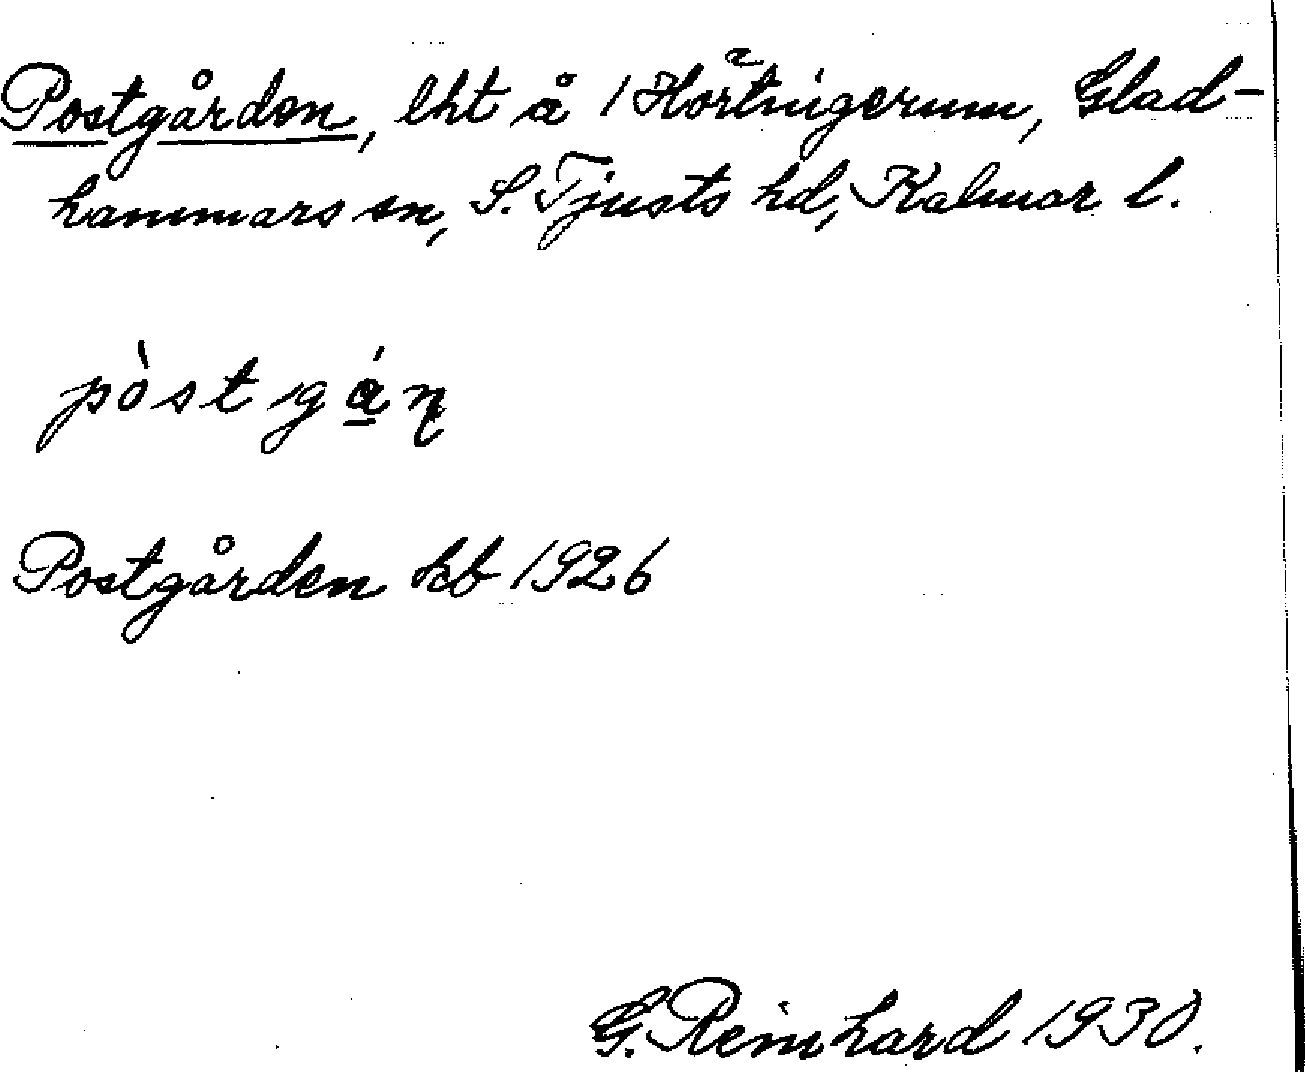 Postgården, lht å 1 Hörtingerum, Glad-
hammars sn, S. Tjusts hd, Kalmar l.
pòstgá̱ṇ
Postgården kb 1926
G. Reinhard 1930.